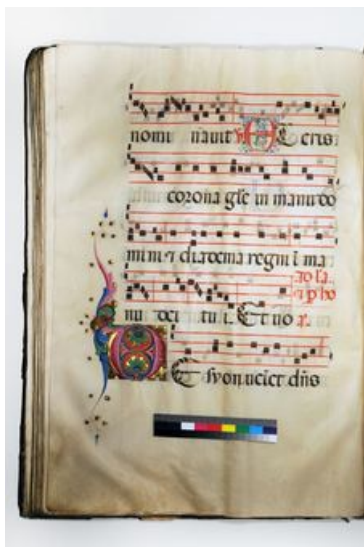 nomi nauit Et eris
corona gle in manu do
mini ⁊ diadema regni i ma
nu dei tui. Et no
syon ueiet dns